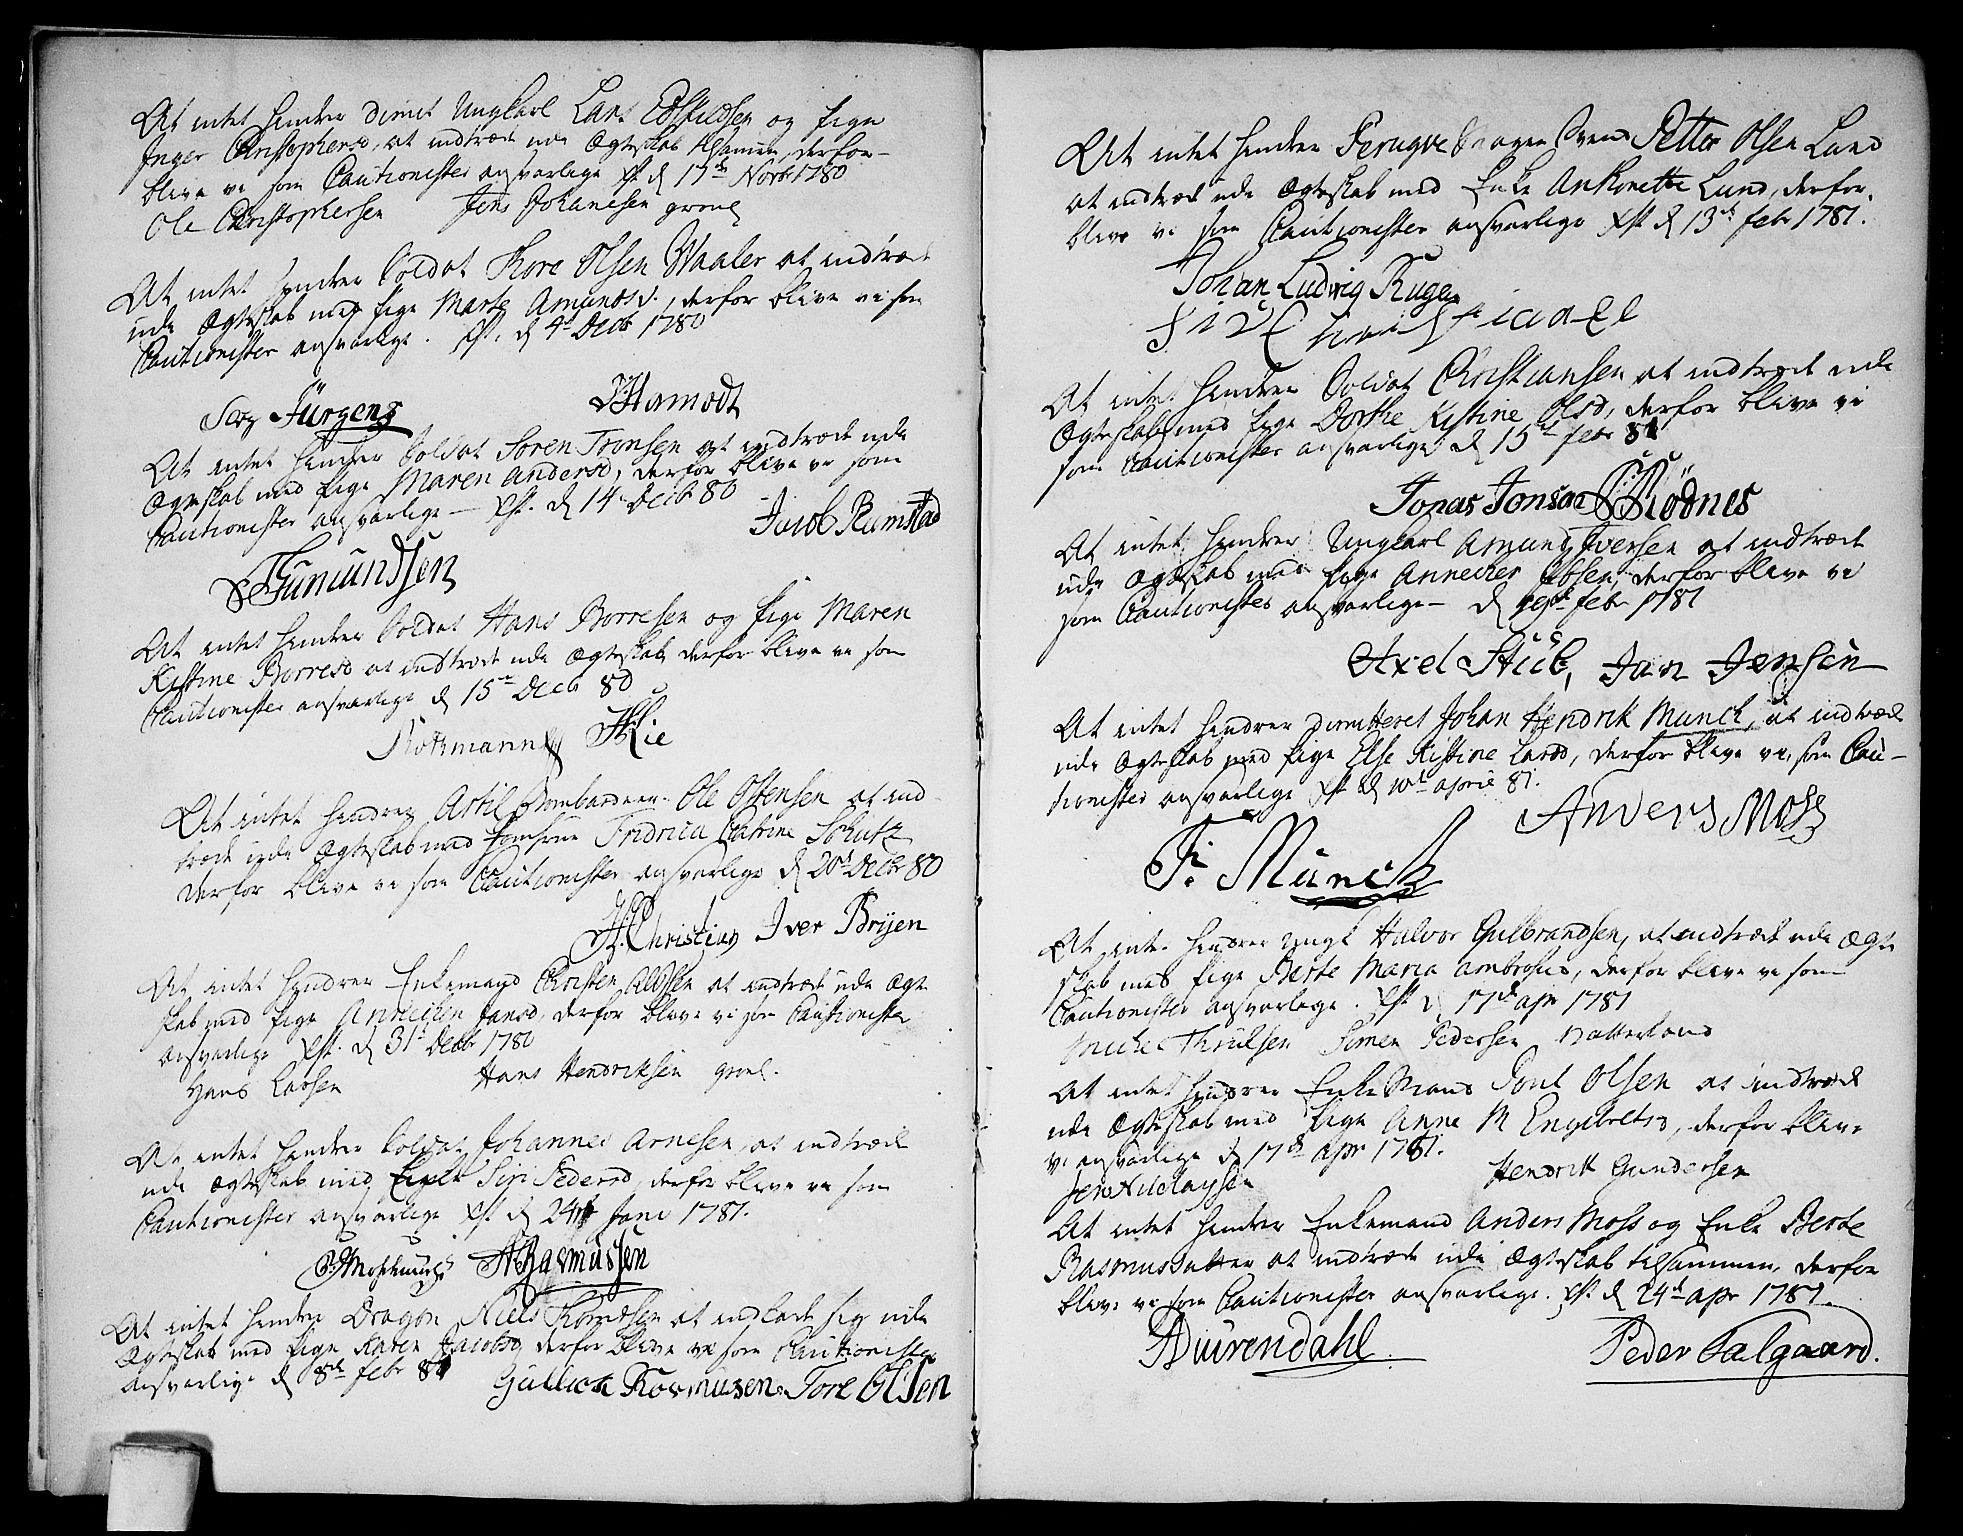 At intet hindrer dimit Ungkarl Lars Edskildsen og Pige
Inger Christophersd, at indtræde udi Ægteskab tilsamen, derfor
blive vi som Cautionister ansvarlige Xst d 17de Novbr 1780
Ole Christophersen Jens Johanesen
At intet hindrer Soldat Thore Olsen Waaler at indtræde
udi Ægteskab med Pige Marte Amunds d., derfor blive vi som
Cautionister ansvarlige. Xst. d 4d Decbr 1780
Jürgens
At intet hindrer Soldat Soren Tronsen at indtræde udi
Ægteskab med Pige Maren Andersd, derfor blive vi som
Cautionister ansvarlige — Xst. d 14 Decbr 80
Jacob Rumstad
At intet hindrer Soldat Hans Borresen og Pige Maren
Kistine Borresd at indtræde udi Ægteskab derfor blive vi som
Cautionister ansvarlige d 15de Decbr 80
Rottmann
At intet hindrer Artil Bombardeer Ole Ostensen at ind-
træde udi Ægteskab med Jomfrue Fridrica Catrine Schutz
derfor blive vi som Cautionister ansvarlige d 20d Decbr 80
H. Christian Iver Brijen
At intet hindrer Enkemand Christen Olssen at indtræde udi Ægte
skab med Pige Anneken Jansd, derfor blive vi som Cautionister
ansvarlige Xst. d 31d Decbr 1780
Hans Larsen Hans Hendriksen
At intet hindrer Soldat Johannes Arnesen at indtræde
udi Ægteskab med Siri Pedersd, derfor blive vi som
Cautionister ansvarlige Xst d 24 Janv 1781.
Rasmussen
At intet hindrer Dragon Niels at indlade sig udi
Ægteskab med Pige Karen Jacobsd derfor blive vi som Cautionister
ansvarlige d 8de febr 81 Gullick Rosmusen Tore Olsen
At intet hindrer Petter Olsen Lund
at indtræde udi Ægteskab med Enke Antonette Lund, derfor
blive vi som Cautionister ansvarlige Xst d 13de febr 1781.
Johan Ludvig Ruge
At intet hindrer Soldat Christiansen at indtræde udi
Ægteskab med Pige Dorthe Kistine Olsd, derfor blive vi
som Cautionister ansvarlige d 15de febr 81
Jonas Jonson Rödnes
At intet hindrer Ungkarl Amund Iversen at indtræde
udi Ægteskab med Pige Annecken Ebsen, derfor blive vi
som Cautionister ansvarlige — d febr 1781
Axel Stub, Jan Jensen
At intet hindrer Dimitteret Johan Hendrik Munck, at indtræde
udi Ægteskab med Pige Else Kistine Larsd, derfor blive vi, som Cau-
tionister ansvarlige Xst d 10de april 81.
Anders Moss
F. Munck
At intet hindrer ungk Halvor Gulbrandsen, at indtræde udi Ægte
skab med Pige Berte Maria Ambrosius, derfor blive vi som
Cautionister ansvarlige. Xst d 17de apr 1781
Thrulsen Simen Pedersen
At intet hindrer Enke Mand Poul Olsen at indtræde
udi Ægteskab med Pige Anne M Engebretsd, derfor blive
vi ansvarlige d 17de apr 1781.
Jens Nicolaysen Hendrik Gundersen
At intet hindrer Enkemand Anders Moss og Enke Berte
Rasmusdatter at indtræde udi Ægteskab tilsammen, derfor
blive vi som Cautionister ansvarlige. Xst. d 24d apr 1781.
Duurendahl Peder Falgaard.